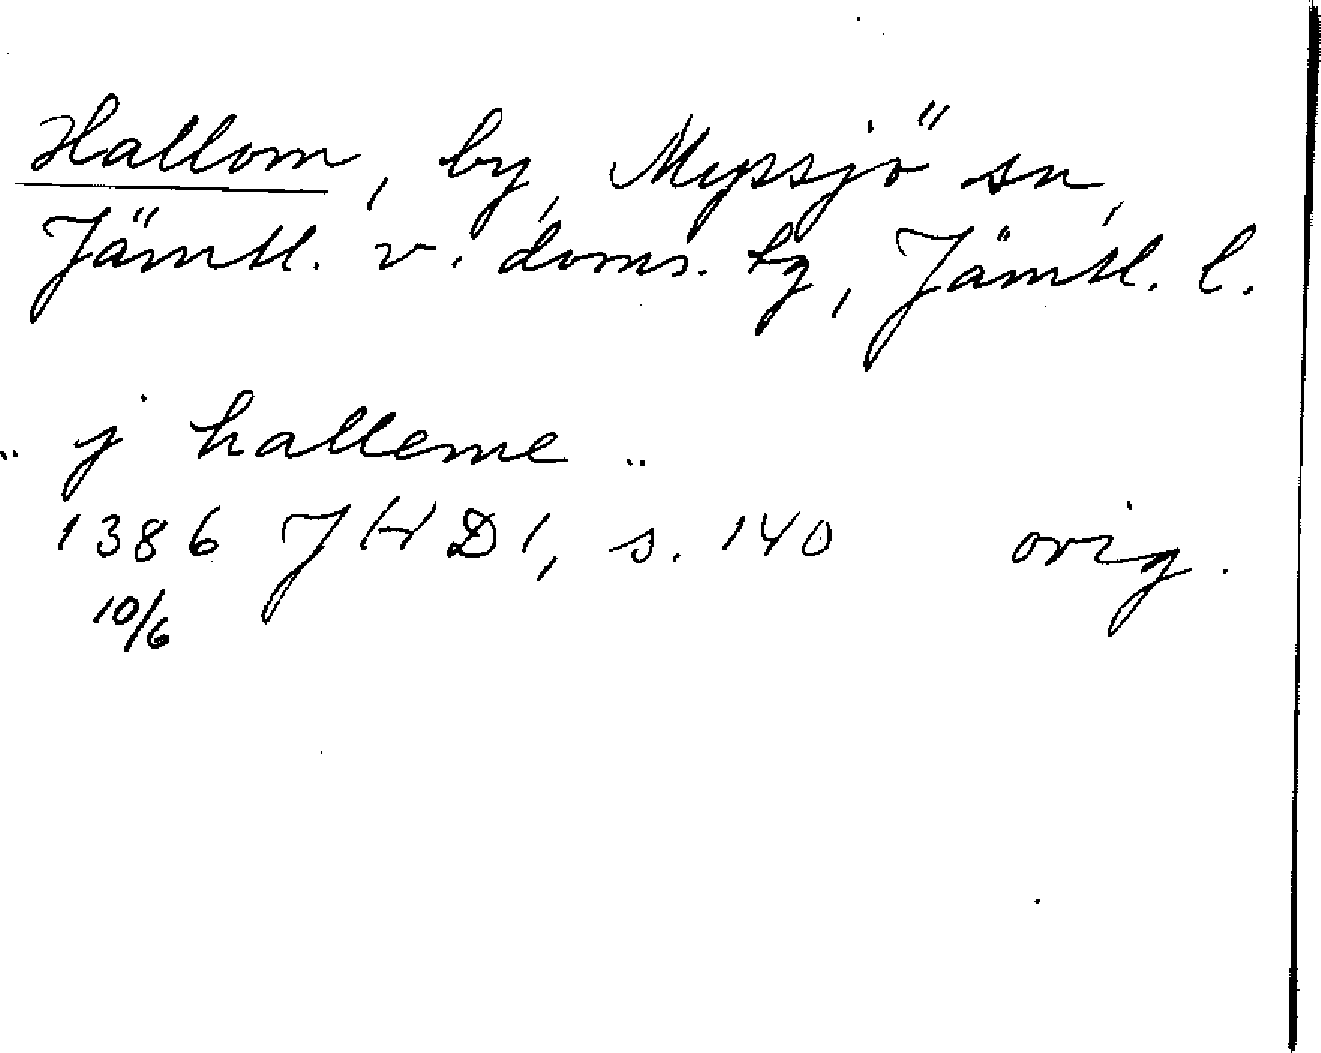 Hallom, by, Myssjö sn,
Jämtl. v. doms. tg, Jämtl. l.
" j halleme "
1386 JHD 1, s. 140 orig.
10/6